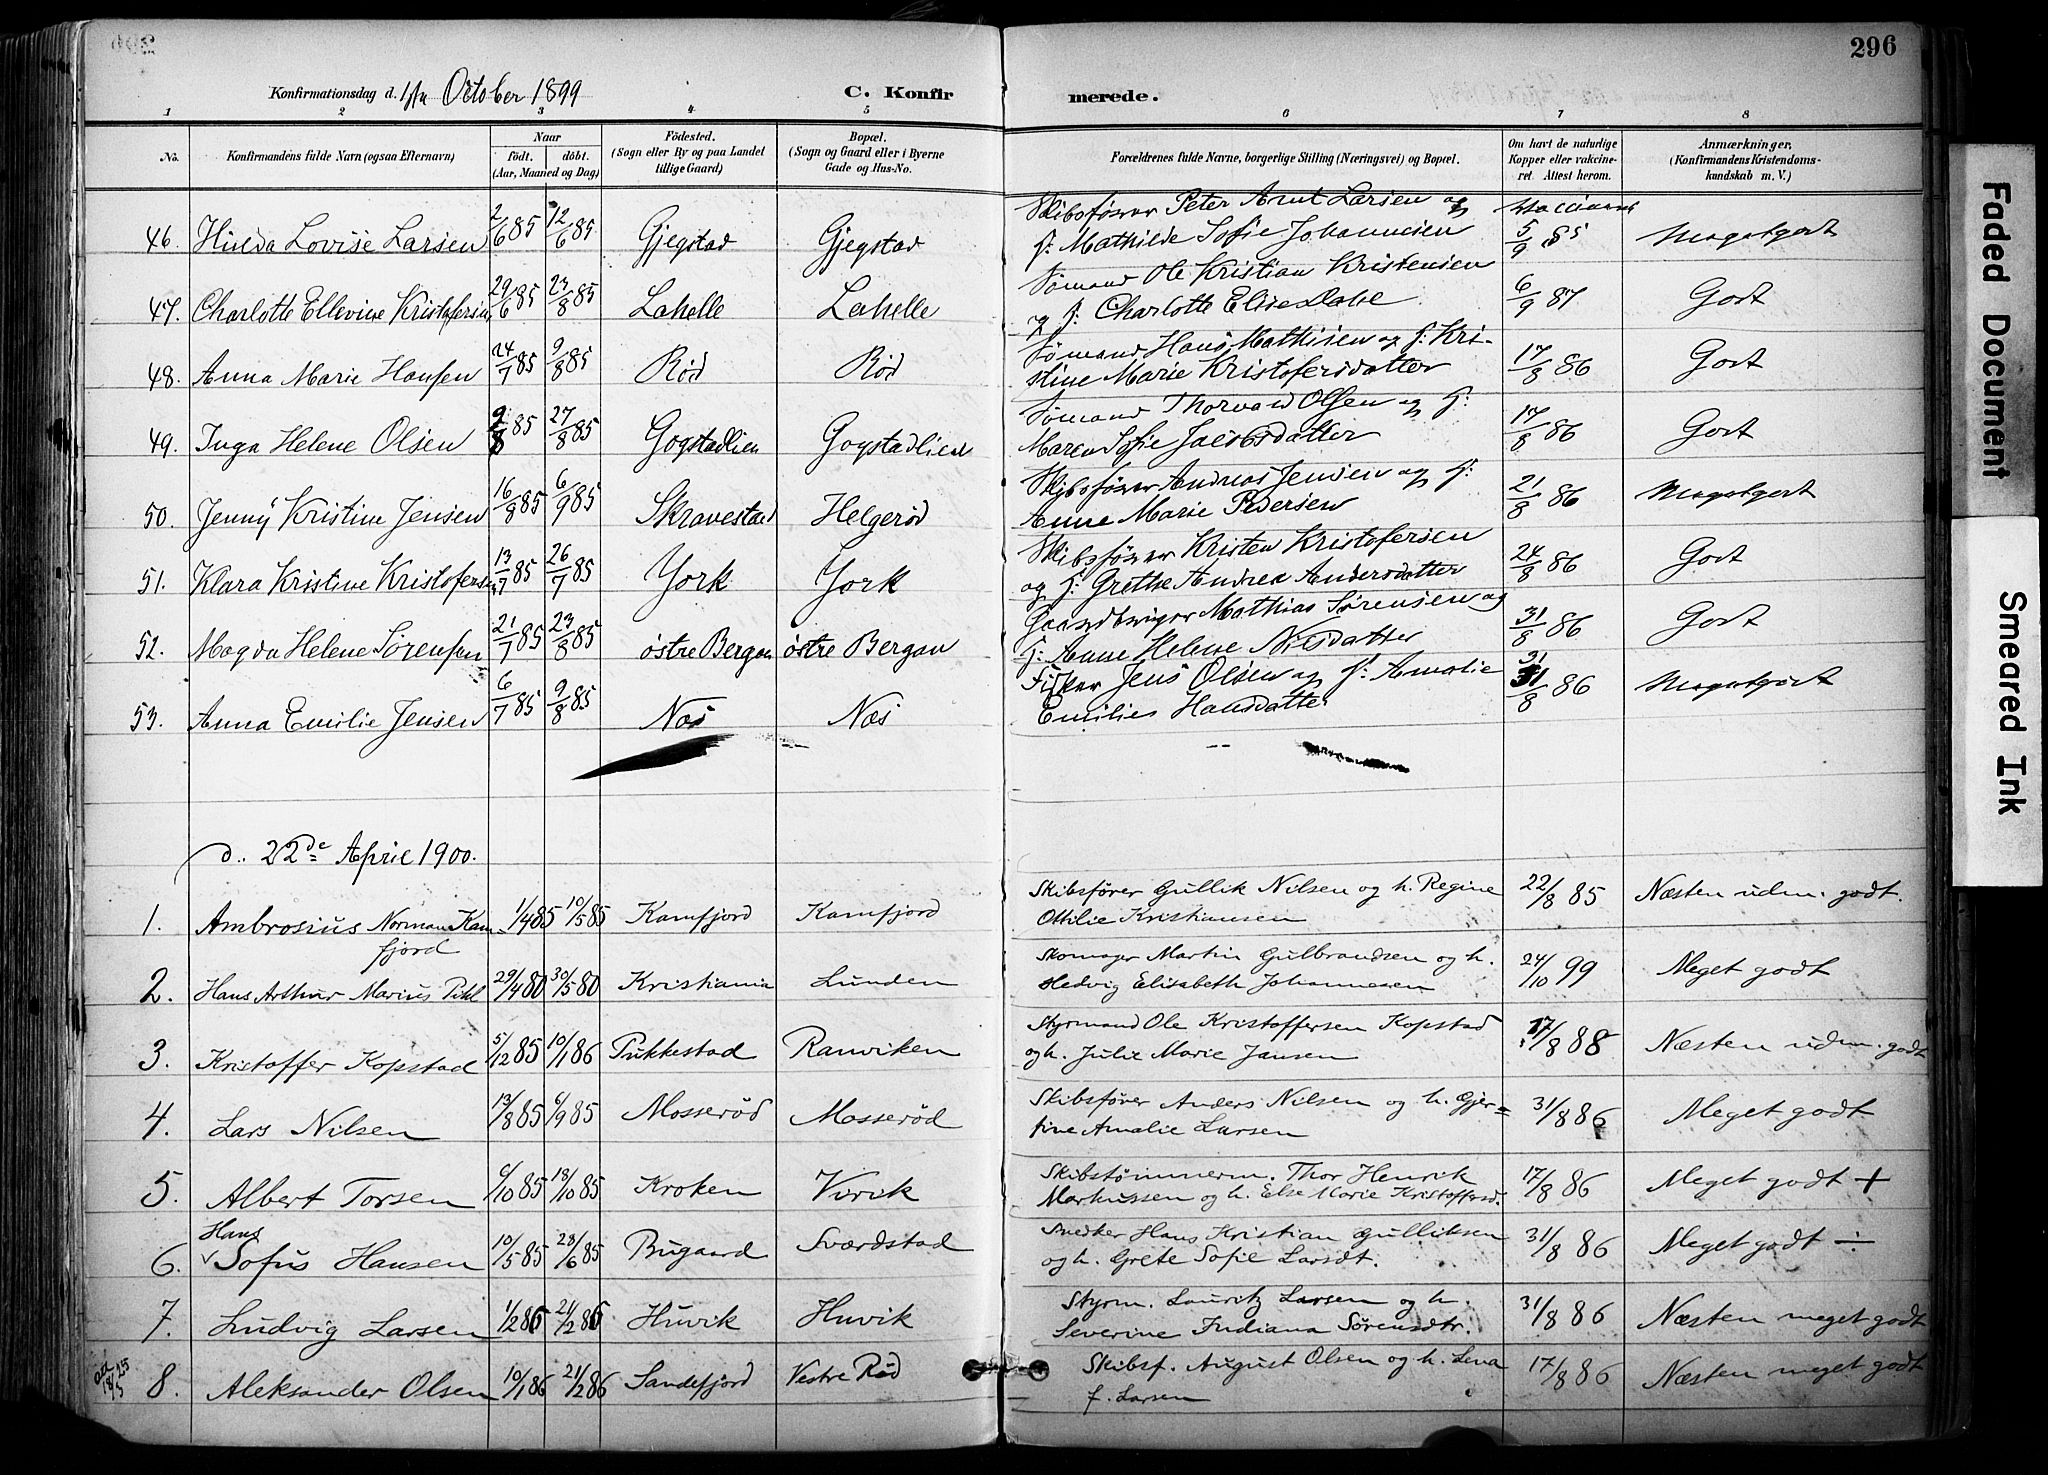 296
Konfirmationsdag d. 1ste October 1899
C. Konfirmerede.
1 2 3 4 5 6 7 8
No. Konfirmandens fulde Navn (ogsaa Efternavn) Naar født. døbt. (Aar, Maaned og Dag) Födested. (Sogn eller By og paa Landet tillige Gaard) Bopæl. (Sogn og Gaard eller i Byerne Gade og Hus-No. Forældrenes fulde Navne, borgerlige Stilling (Næringsvei) og Bopæl. Om havt de naturlige Kopper eller vakcineret. Attest herom. Anmærkninger, (Konfirmandens Kristendomskundskab m. V.)
46. Hilda Lovise Larsen 2/6 85 12/6 85 Gjegstad Gjegstad Skibsfører Peter Arnt Larsen og
h: Mathilde Sofie Johannesen 5/9 85 Megetgodt
47. Charlotte Ellevine Kristofersen 29/6 85 23/8 85 Lahelle Lahelle Sømand Ole Kristian Kristensen
og h: Charlotte Elise Dahl 6/9 87 Godt
48. Anna Marie Hansen 24/7 85 9/8 85 Rød Rød Sømand Hans Mathisen og h: Kri-
stine Marie Kristofersdatter 17/8 86 Godt
49. Inga Helene Olsen 9/8 85 27/8 85 Gogstadlien Gogstadlien Sømand Thorvald Olsen og h:
Maren Sofie Jacobsdatter 17/8 86 Godt
50. Jenny Kristine Jensen 16/8 85 6/9 85 Skravestad Helgerød Skibsfører Andreas Jensen og h:
Anne Marie Pedersen 21/8 86 Megetgodt
51. Klara Kristine Kristofersen 13/7 85 26/7 85 York York Skibsfører Kristen Kristofersen
og h: Grethe Andrea Andersdatter 24/8 86 Godt
52. Magda Helene Sørensen 21/7 85 23/8 85 østre Bergan østre Bergan Gaardbruger Mathias Sørensen og
h: Anne Helene Nilsdatter 31/8 86 Godt
53. Anna Emilie Jensen 6/7 85 9/8 85 Næs Næs Fisker Jens Olsen og h: Amalie
Emilie Hansdatter 31/8 86 Megetgodt
d. 22de April 1900.
1. Ambrosius Norman Kam- 1/4 85 10/5 85 Kamfjord Kamfjord Skibsfører Gullik Nilsen og h. Regine 22/8 85 Næsten udm. godt.
fjord Ottilie Kristiansen
2. Hans Arthur Marius Pihl 29/4 80 30/5 80 Kristiania Lunden Skomager Martin Gulbrandsen og h.
Hedvig Elisabeth Johannesen 24/10 99 Meget godt
3. Kristoffer Kopstad 5/12 85 10/1 86 Pukkestad Ranviken Styrmand Ole Kristoffersen Kopstad
og h. Julie Marie Jansen 17/8 88 Næsten udm. godt
4. Lars Nilsen 13/8 85 6/9 85 Mosserød Mosserød Skibsfører Anders Nilsen og h. Gjer=
tine Amalie Larsen 31/8 86 Meget godt
5. Albert Torsen 6/10 85 18/10 85 Kroken Virik Skibstømmerm. Thor Henrik
Markussen og h. Else Marie Kristoffersd. 17/8 86 Meget godt +
Hans
6. Sofus Hansen 10/5 85 28/6 85 Bugaard Sværdstad Snedker Hans Kristian Gulliksen
og h. Grete Sofie Larsdt. 31/8 86 Meget godt ÷
7. Ludvig Larsen 1/2 86 21/2 86 Huvik Huvik Styrm. Lauritz Larsen og h.
Severine Indiana Sørensdtr. 31/8 86 Næsten meget godt
8. Aleksander Olsen 10/1 86 21/2 86 Sandefjord Vestre Rød Skibsf. August Olsen og h. Lena
f. Larsen 17/8 86 Næsten meget godt
Faded Document
Smeared Ink